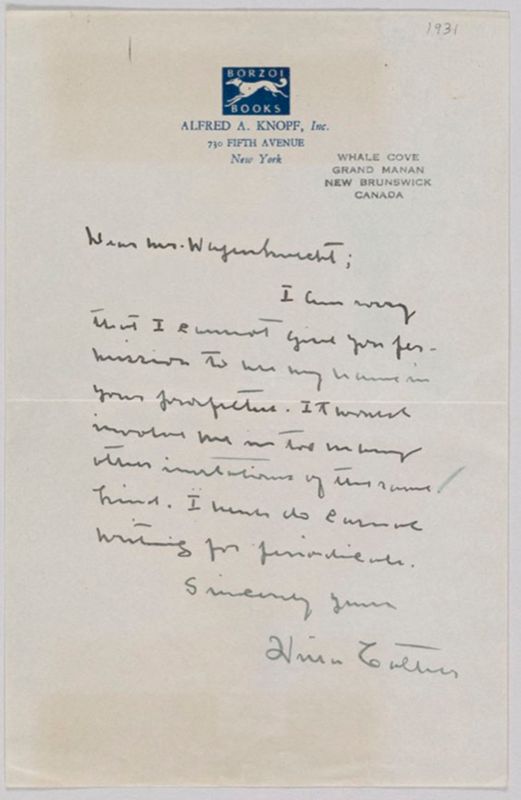 1931
BORZOI
BOOKS
ALFRED A. KNOPF, Inc.
730 FIFTH AVENUE
New York
WHALE COVE
GRAND MANAN
NEW BRUNSWICK
CANADA
Dear Mr. Wagenknecht;
I am sorry
that I cannot give you per-
mission to use my name in
your prospectus. It would
involve me in too many
other invitations of the same
kind. I never do casual
writing for periodicals.
Sincerely yours
Willa Cather